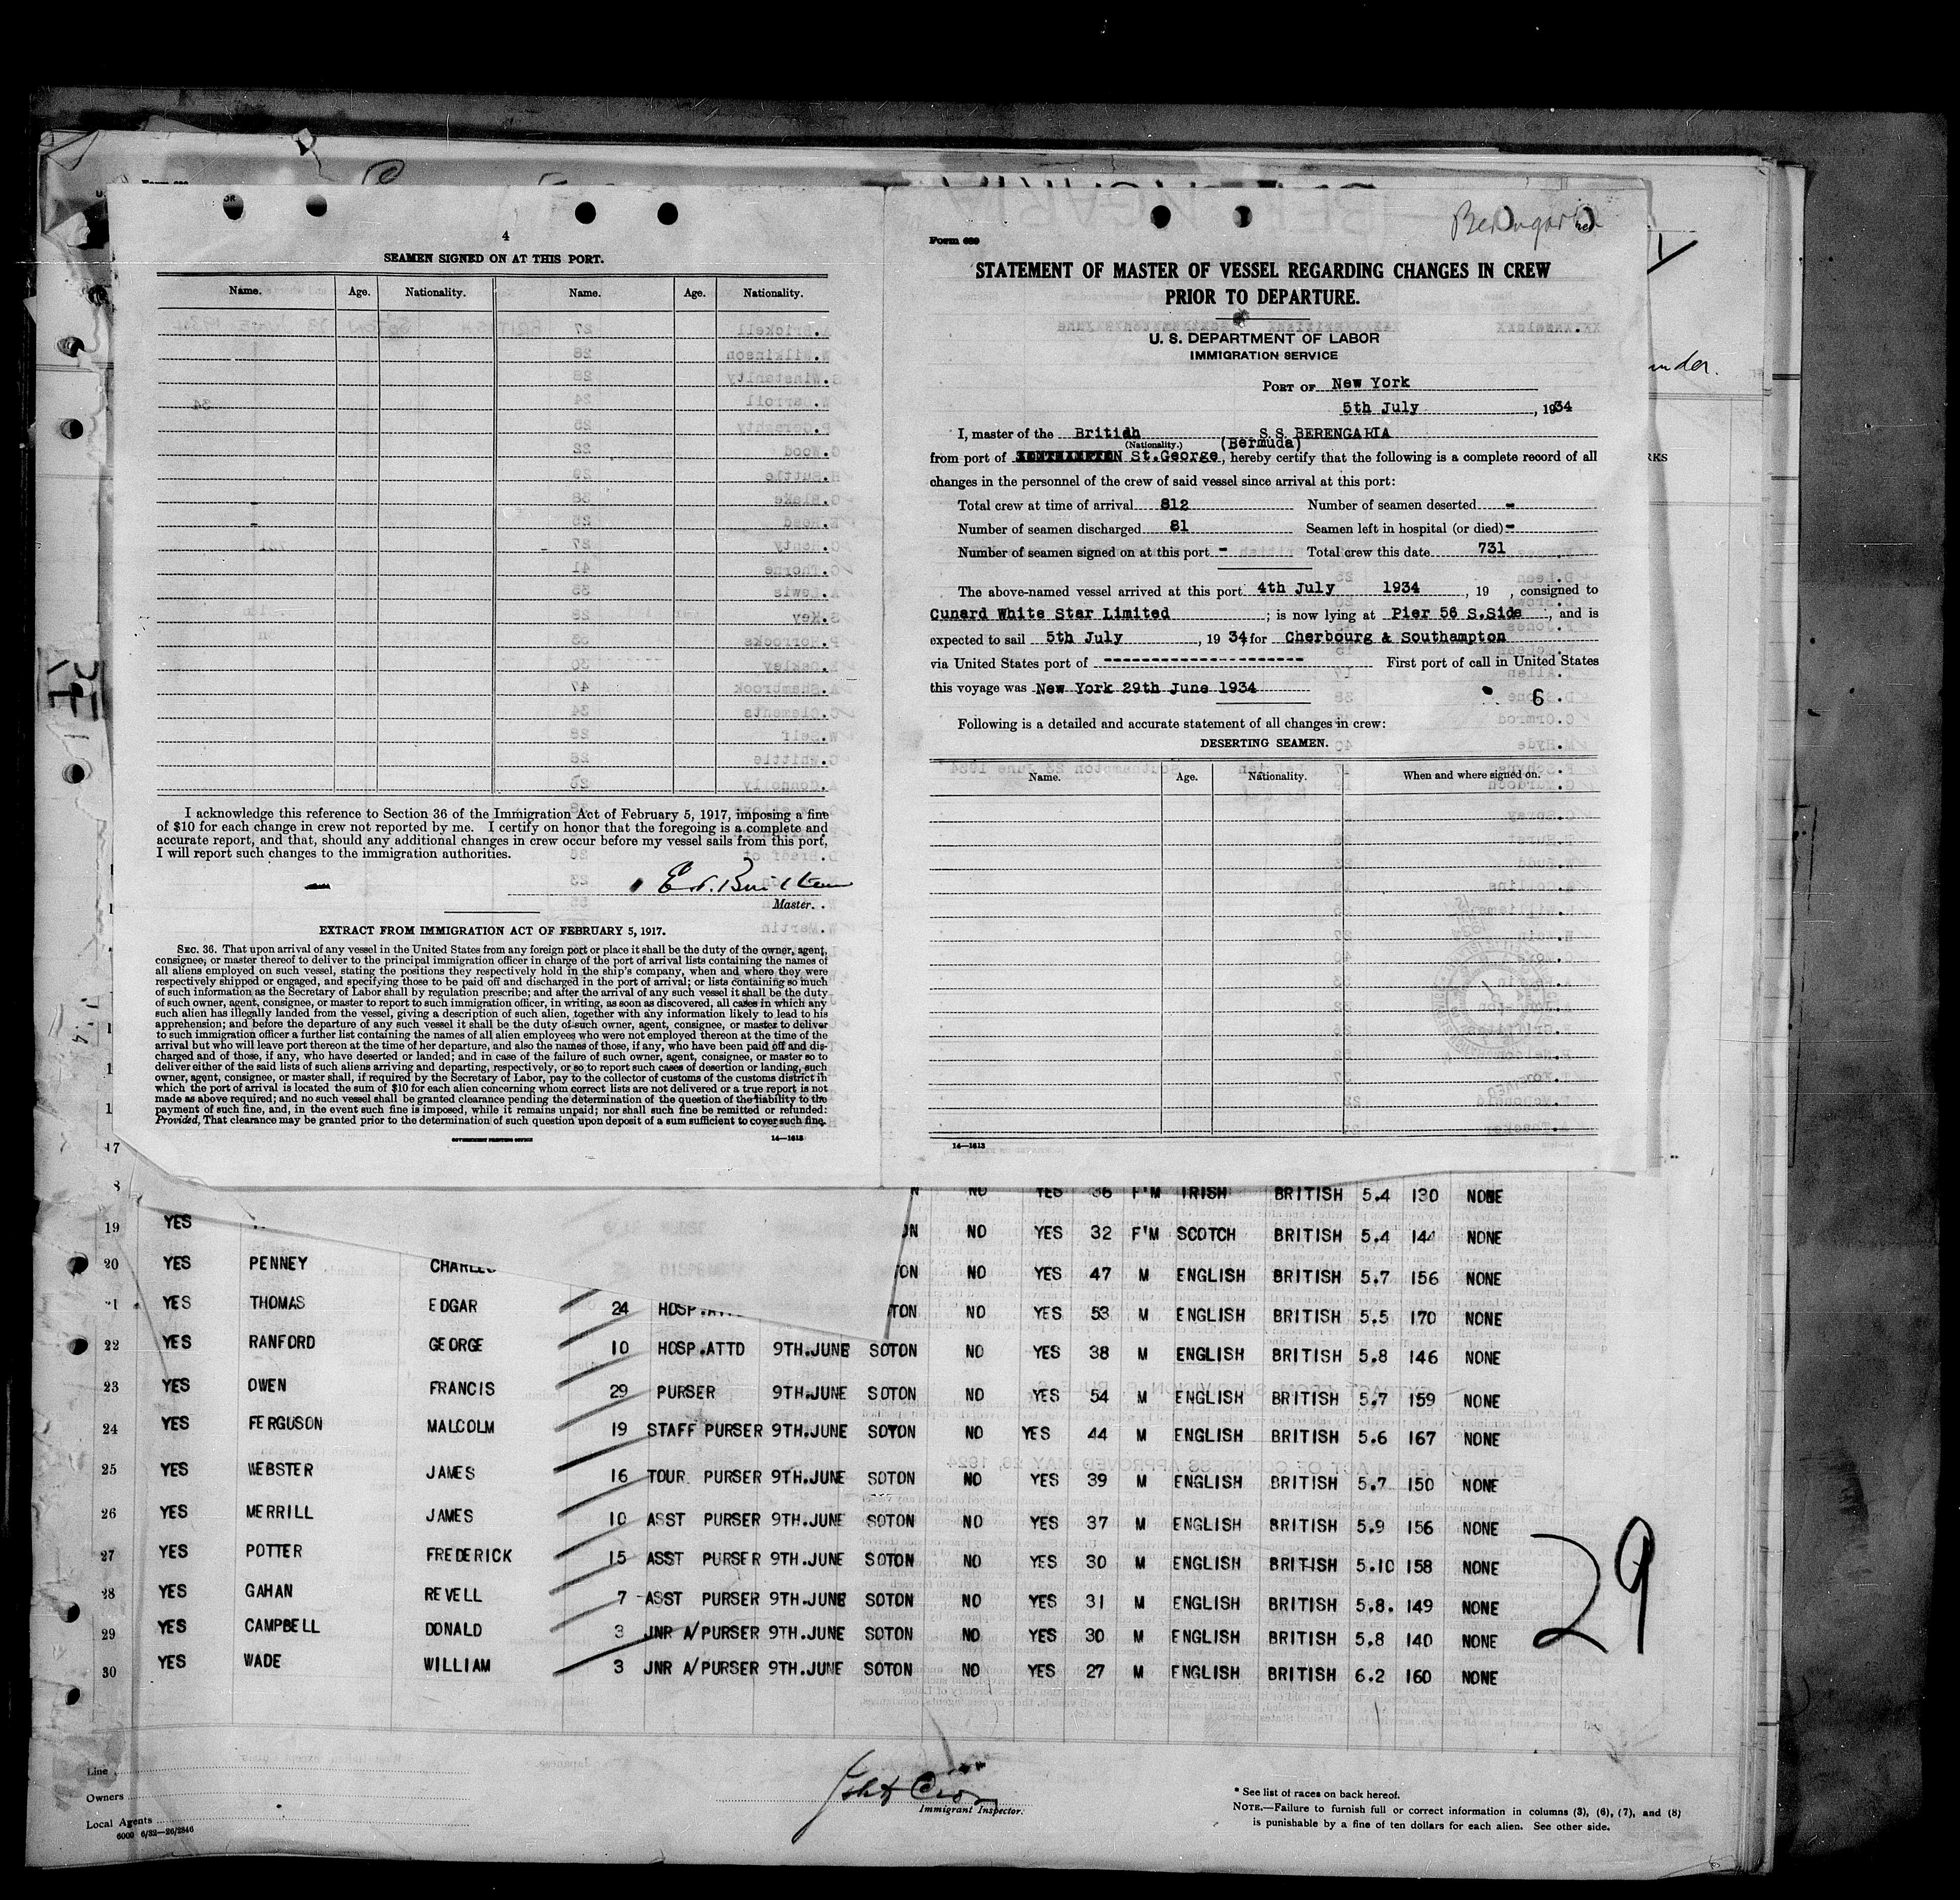 4
SEAMEN SIGNED ON AT THIS PORT.
Name. Age. Nationality. Name. Age. Nationality.
I acknowledge this reference to Section 36 of the Immigration Act of February 5, 1917, imposing a fine
of $10 for each change in crew not reported by me. I certify on honor that the foregoing is a complete and
accurate report, and that, should any additional changes in crew occur before my vessel sails from this port,
I will report such changes to the immigration authorities.
Master.
EXTRACT FROM IMMIGRATION ACT OF FEBRUARY 5, 1917.
SEC. 36. That upon arrival of any vessel in the United States from any foreign port or place it shall be the duty of the owner, agent,
consignee, or master thereof to deliver to the principal immigration officer in charge of the port of arrival lists containing the names of
all aliens employed on such vessel, stating the positions they respectively hold in the ship's company, when and where they were
respectively shipped or engaged, and specifying those to be paid off and discharged in the port of arrival; or lists containing so much
of such information as the Secretary of Labor shall by regulation prescribe; and after the arrival of any such vessel it shall be the duty
of such owner, agent, consignee, or master to report to such immigration officer, in writing, as soon as discovered, all cases in which any
such alien has illegally landed from the vessel, giving a description of such alien, together with any information likely to lead to his
apprehension; and before the departure of any such vessel it shall be the duty of such owner, agent, consignee, or master to deliver
to such immigration officer a further list containing the names of all alien employees who were not employed thereon at the time of the
arrival but who will leave port thereon at the time of her departure, and also the names of those, if any, who have been paid off and dis-
charged and of those, if any, who have deserted or landed; and in case of the failure of such owner, agent, consignee, or master so to
deliver either of the said lists of such aliens arriving and departing, respectively, or so to report such cases of desertion or landing, such
owner, agent, consignee, or master shall, if required by the Secretary of Labor, pay to the collector of customs of the customs district in
which the port of arrival is located the sum of $10 for each alien concerning whom correct lists are not delivered or a true report is not
made as above required; and no such vessel shall be granted clearance pending the determination of the question of the liability to the
payment of such fine, and, in the event such fine is imposed, while it remains unpaid; nor shall such fine be remitted or refunded:
Provided, That clearance may be granted prior to the determination of such question upon deposit of a sum sufficient to cover such fine.
GOVERNMENT PRINTING OFFICE 14—1613
Berengaria
Form 689
STATEMENT OF MASTER OF VESSEL REGARDING CHANGES IN CREW
PRIOR TO DEPARTURE.
U. S. DEPARTMENT OF LABOR
IMMIGRATION SERVICE
PORT OF New York
5th July, 1934
I, master of the British S.S. BERENGARIA
(Nationality.) (Bermuda)
from port of St.George, hereby certify that the following is a complete record of all
changes in the personnel of the crew of said vessel since arrival at this port:
Total crew at time of arrival 812 Number of seamen deserted -
Number of seamen discharged 81 Seamen left in hospital (or died) -
Number of seamen signed on at this port - Total crew this date 731
The above-named vessel arrived at this port 4th July 1934, 19 , consigned to
Cunard White Star Limited ; is now lying at Pier 56 S.Side, and is
expected to sail 5th July, 1934 for Cherbourg & Southampton
via United States port of ------------------------ First port of call in United States
this voyage was New York 29th June 1934
6
Following is a detailed and accurate statement of all changes in crew:
DESERTING SEAMEN.
Name. Age. Nationality. When and where signed on.
14—1613
17
NO YES 36 F'M IRISH BRITISH 5.4 130 NONE
19 YES NO YES 32 F'M SCOTCH BRITISH 5.4 144 NONE
20 YES PENNEY CHARLES NO YES 47 M ENGLISH BRITISH 5.7 156 NONE
21 YES THOMAS EDGAR 24 HOSP.ATTD NO YES 53 M ENGLISH BRITISH 5.5 170 NONE
22 YES RANFORD GEORGE 10 HOSP.ATTD 9TH.JUNE SOTON NO YES 38 M ENGLISH BRITISH 5.8 146 NONE
23 YES OWEN FRANCIS 29 PURSER 9TH.JUNE SOTON NO YES 54 M ENGLISH BRITISH 5.7 159 NONE
24 YES FERGUSON MALCOLM 19 STAFF PURSER 9TH.JUNE SOTON NO YES 44 M ENGLISH BRITISH 5.6 167 NONE
25 YES WEBSTER JAMES 16 TOUR. PURSER 9TH.JUNE SOTON NO YES 39 M ENGLISH BRITISH 5.7 150 NONE
26 YES MERRILL JAMES 10 ASST PURSER 9TH.JUNE SOTON NO YES 37 M ENGLISH BRITISH 5.9 156 NONE
27 YES POTTER FREDERICK 15 ASST PURSER 9TH.JUNE SOTON NO YES 30 M ENGLISH BRITISH 5.10 158 NONE
28 YES GAHAN REVELL 7 ASST PURSER 9TH.JUNE SOTON NO YES 31 M ENGLISH BRITISH 5.8. 149 NONE
29 YES CAMPBELL DONALD 3 JNR A/PURSER 9TH.JUNE SOTON NO YES 30 M ENGLISH BRITISH 5.8 140 NONE
30 YES WADE WILLIAM 3 JNR A/PURSER 9TH.JUNE SOTON NO YES 27 M ENGLISH BRITISH 6.2 160 NONE
29
Line
Owners
Local Agents
6000 6/32—26/2846
Immigrant Inspector.
* See list of races on back hereof.
NOTE.—Failure to furnish full or correct information in columns (3), (6), (7), and (8)
is punishable by a fine of ten dollars for each alien. See other side.